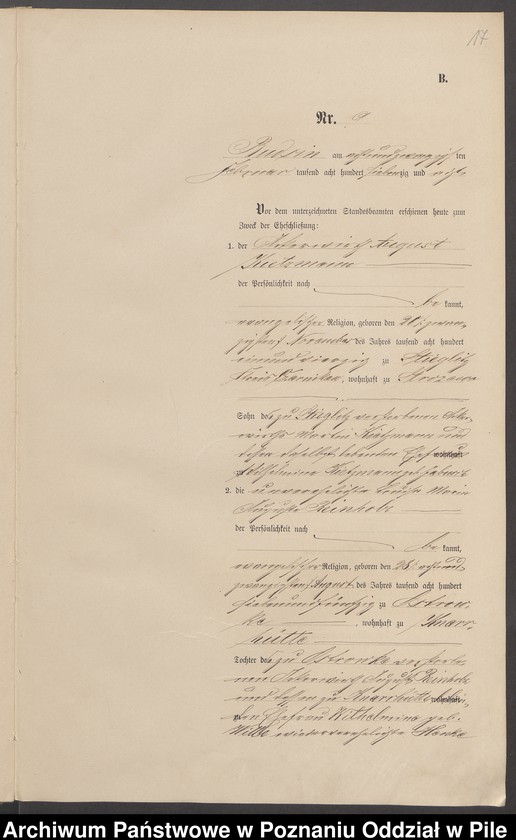 17
B.
Nr. 9
Budsin am achtundzwanzigsten
Februar tausend acht hundert siebenzig und acht
Vor dem unterzeichneten Standesbeamten erschienen heute zum
Zweck der Eheschließung:
1. der Ackerwirth August
Kutzmann
der Persönlichkeit nach
be kannt,
evangelischer Religion, geboren den
November des Jahres tausend acht hundert
einundvierzig zu Stieglitz
Kreis Czarnikau, wohnhaft zu
Sohn des zu Stieglitz verstorbenen Acker-
wirths Martin Kutzmann und
dessen daselbst lebenden Ehefrau wohnhaft
Wilhelmine Kutzmann geb.
2. die unverehelichte Marie
Auguste Reinholz
der Persönlichkeit nach
be kannt,
evangelischer Religion, geboren den 28. achtund-
zwanzigsten August des Jahres tausend acht hundert
siebenundfünfzig zu Ostrow-
ke, wohnhaft zu Knarr-
hütte
Tochter des zu Ostrowke verstorbe-
nen Ackerwirth August Reinholz
und dessen zu Knarrhütte wohnhaft
Ehefrau Wilhelmine geb.
Wilke wiederverehelichte
Archiwum Państwowe w Poznaniu Oddział w Pile